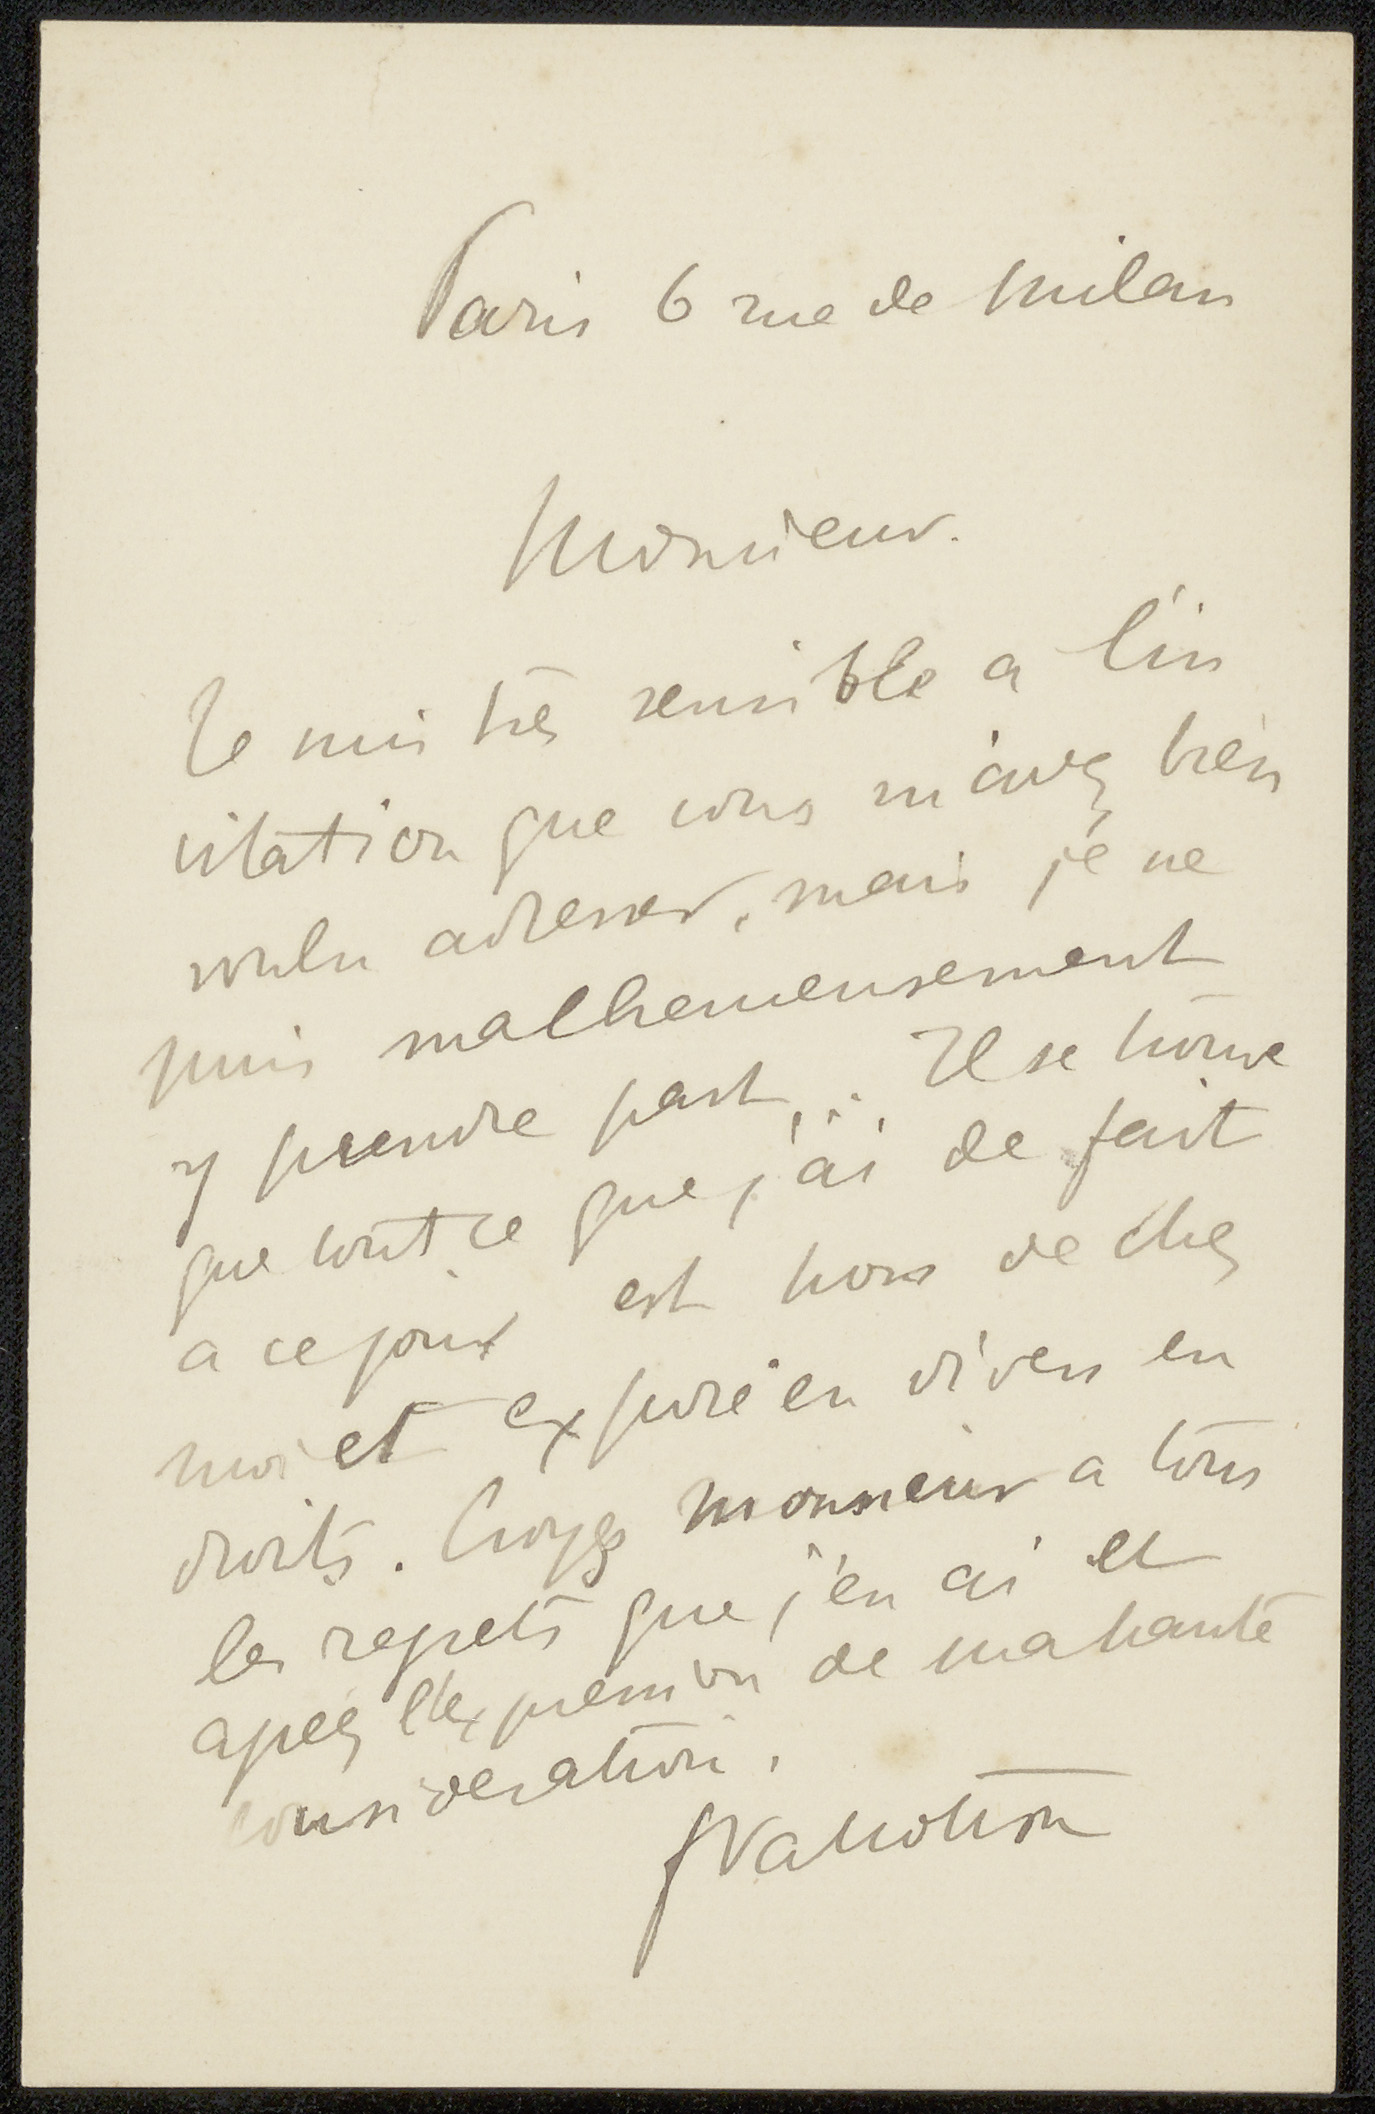 Paris 6 rue de Milan
Monsieur.
Je suis très sensible a l'in
vitation que vous m'avez bien
voulu adresser, mais je ne
puis malheureusement
y prendre part... Il se trouve
que tout ce que j'ai de fait
a ce jour est hors de chez
moi et exposé en divers en
droits. Croyez monsieur a tous
les regrets que j'en ai et
a l'expression de ma haute
consideration.
fVallotton